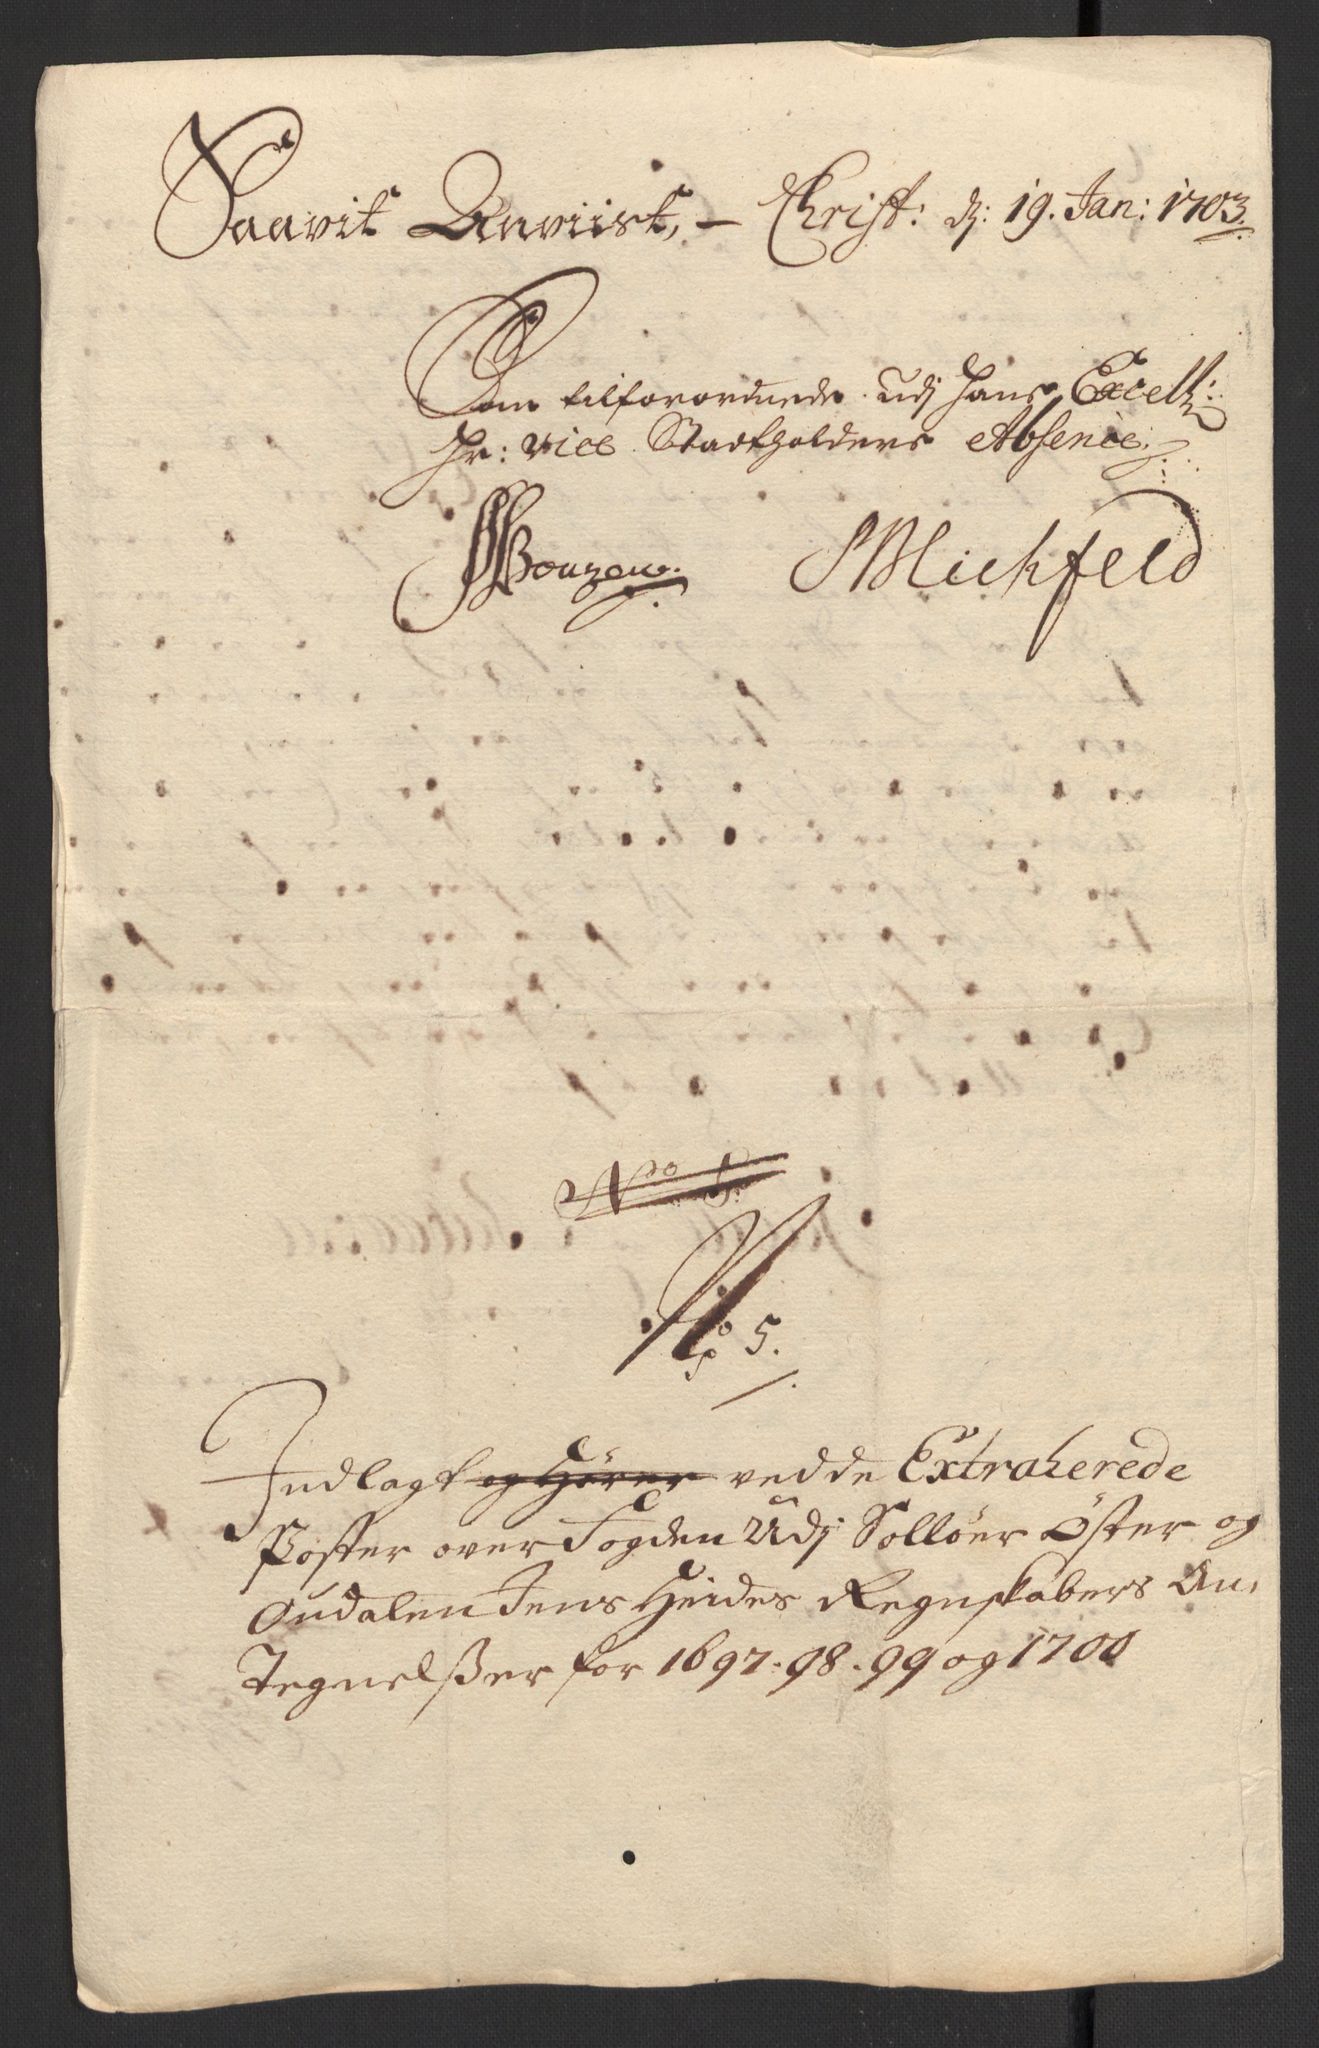 Saavit Anviist, – Christ: dj: 19. Jan: 1703.
Som tilforordnede udj Hans Excell:
Hr: Vice Stadtholders Absence
Bonzow. Michfeld
No 5.
No 5.
Indlagt og Hörer ved de Extraherede
Poster over Fogden Udj Sollöer Öster og
Oudalen Jens Heides Regnskabers An,
Tegnelsser for 1697. 98. 99 og 1700